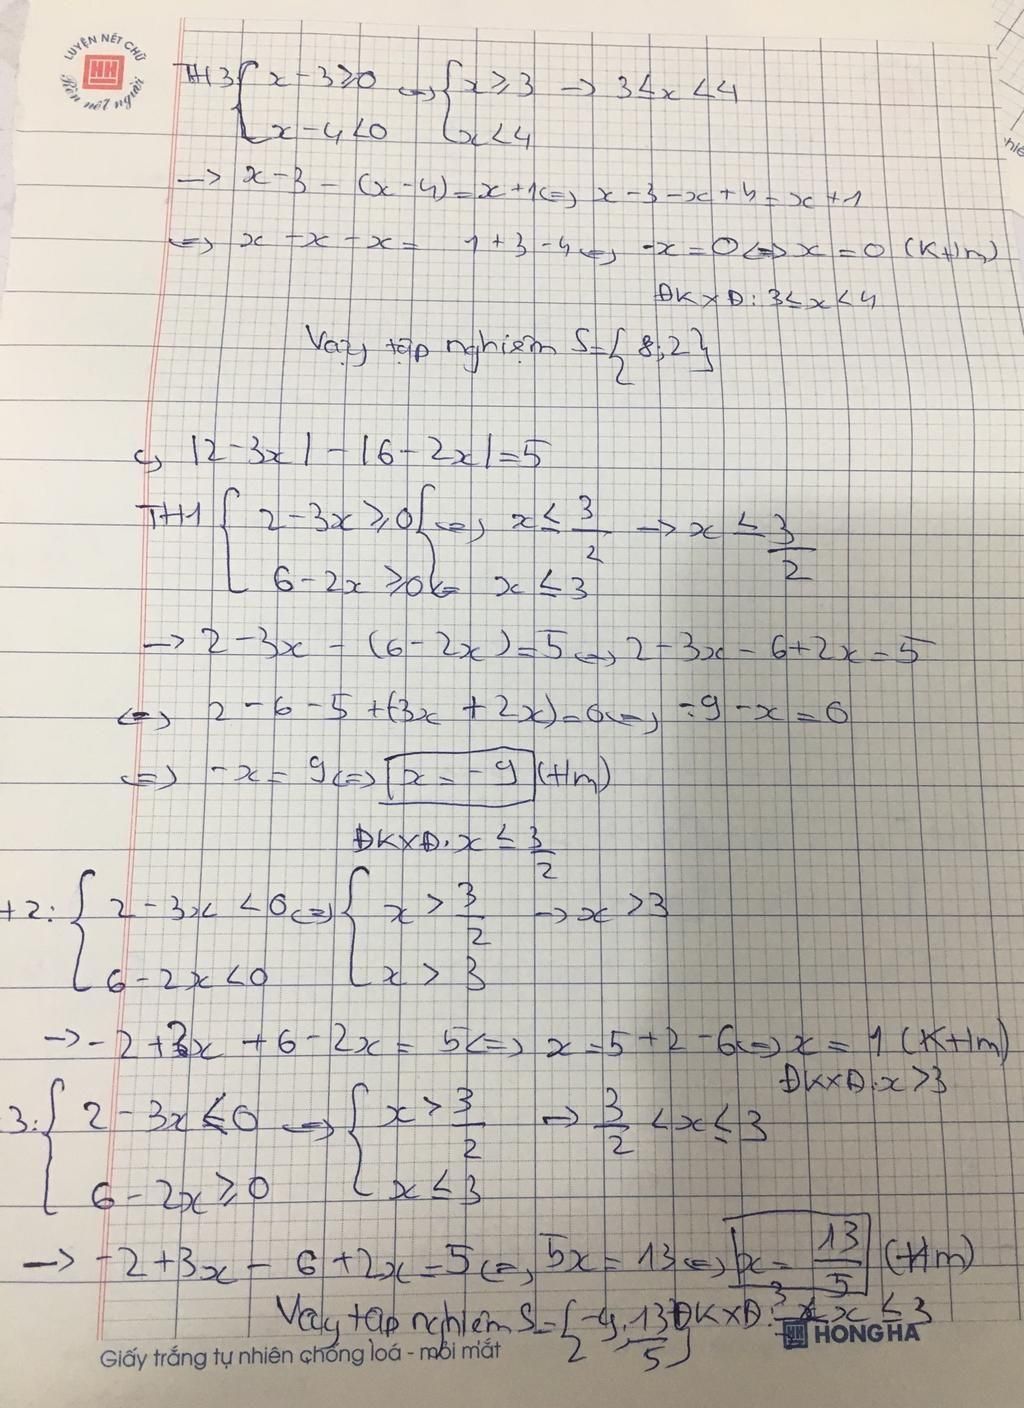 LUYỆN NÉT CHỮ
HH
Rèn nết người
TH3 { x - 3 ≥ 0 ⇔ { x ≥ 3 → 3 ≤ x < 4
x - 4 < 0 x < 4
→ x - 3 - (x - 4) = x + 1 ⇔ x - 3 - x + 4 = x + 1
⇔ x - x - x = 1 + 3 - 4 ⇔ -x = 0 ⇔ x = 0 (Ktm)
ĐKXĐ: 3 ≤ x < 4
Vậy tập nghiệm S = {8; 2}
c, |2 - 3x| - |6 - 2x| = 5
TH1 { 2 - 3x ≥ 0 { ⇔ x ≤ 3/2 → x ≤ 3/2
6 - 2x ≥ 0 x ≤ 3
→ 2 - 3x - (6 - 2x) = 5 ⇔ 2 - 3x - 6 + 2x = 5
⇔ 2 - 6 - 5 + (3x + 2x) = 0 ⇔ -9 - x = 0
⇔ -x = 9 ⇔ x = -9 (tm)
ĐKXĐ. x ≤ 3/2
+2: { 2 - 3x < 0 ⇔ { x > 3/2 → x > 3
6 - 2x < 0 x > 3
→ -2 + 3x + 6 - 2x = 5 ⇔ x = 5 + 2 - 6 ⇔ x = 1 (Ktm)
ĐKXĐ. x > 3
3: { 2 - 3x ≤ 0 ⇔ { x > 3/2 → 3/2 < x ≤ 3
6 - 2x ≥ 0 x ≤ 3
→ -2 + 3x - 6 + 2x = 5 ⇔ 5x = 13 ⇔ x = 13/5 (tm)
Vậy tập nghiệm S = {-9, 13/5} ĐKXĐ: 3/2 < x ≤ 3
HH HONG HA
Giấy trắng tự nhiên chống loá - mỏi mắt